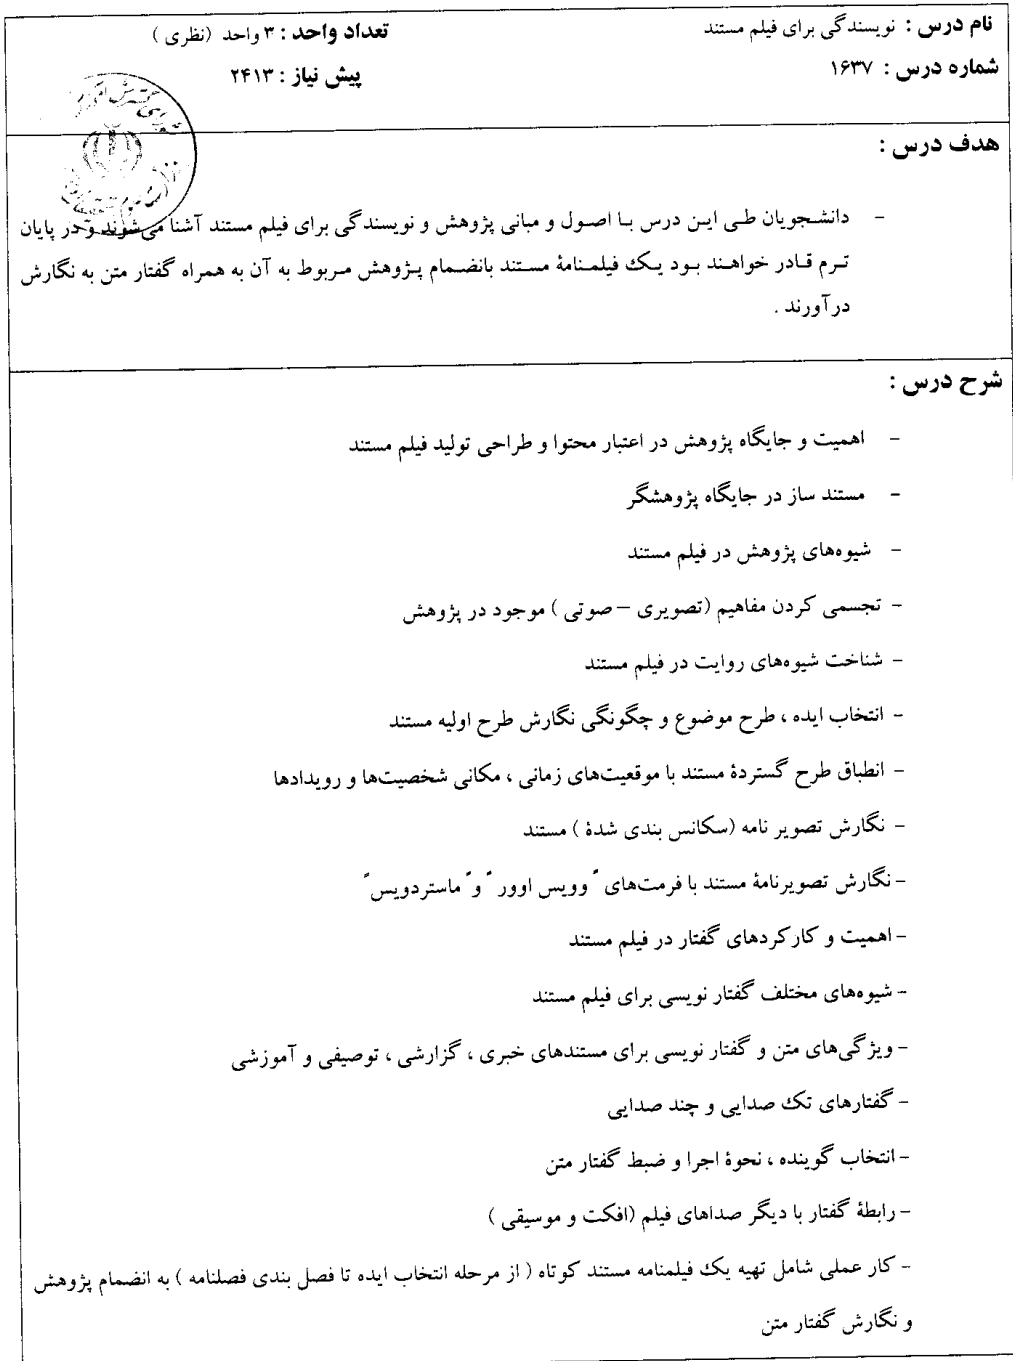 نام درس : نویسندگی برای فیلم مستند
تعداد واحد : ۳ واحد (نظری )
شماره درس : ۱۶۳۷
پیش نیاز : ۲۴۱۳
هدف درس :
- دانشجویان طی این درس با اصول و مبانی پژوهش و نویسندگی برای فیلم مستند آشنا می‌شوند و در پایان
ترم قادر خواهند بود یک فیلمنامهٔ مستند بانضمام پژوهش مربوط به آن به همراه گفتار متن به نگارش
درآورند .
شرح درس :
- اهمیت و جایگاه پژوهش در اعتبار محتوا و طراحی تولید فیلم مستند
- مستند ساز در جایگاه پژوهشگر
- شیوه‌های پژوهش در فیلم مستند
- تجسمی کردن مفاهیم (تصویری – صوتی ) موجود در پژوهش
- شناخت شیوه‌های روایت در فیلم مستند
- انتخاب ایده ، طرح موضوع و چگونگی نگارش طرح اولیه مستند
- انطباق طرح گستردهٔ مستند با موقعیت‌های زمانی ، مکانی شخصیت‌ها و رویدادها
- نگارش تصویر نامه (سکانس بندی شدهٔ ) مستند
- نگارش تصویرنامهٔ مستند با فرمت‌های ً وویس اوور ً و ً ماستردویس ً
- اهمیت و کارکردهای گفتار در فیلم مستند
- شیوه‌های مختلف گفتار نویسی برای فیلم مستند
- ویژگی‌های متن و گفتار نویسی برای مستندهای خبری ، گزارشی ، توصیفی و آموزشی
- گفتارهای تک صدایی و چند صدایی
- انتخاب گوینده ، نحوهٔ اجرا و ضبط گفتار متن
- رابطهٔ گفتار با دیگر صداهای فیلم (افکت و موسیقی )
- کار عملی شامل تهیه یک فیلمنامه مستند کوتاه ( از مرحله انتخاب ایده تا فصل بندی فصلنامه ) به انضمام پژوهش
و نگارش گفتار متن